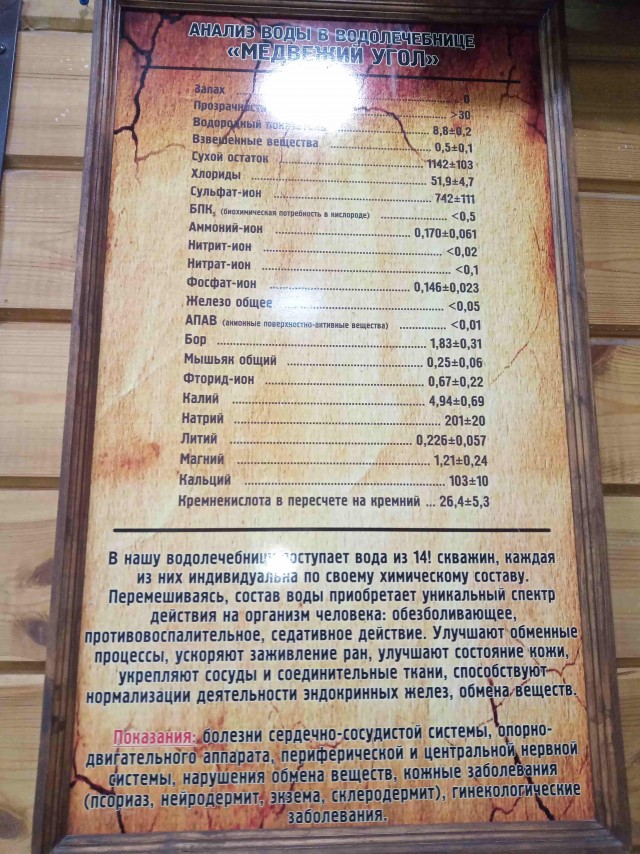 АНАЛИЗ ВОДЫ В ВОДОЛЕЧЕБНИЦЕ
«МЕДВЕЖИЙ УГОЛ»
Запах 0
Прозрачность >30
Водородный показатель 8,8±0,2
Взвешенные вещества 0,5±0,1
Сухой остаток 1142±103
Хлориды 51,9±4,7
Сульфат-ион 742±111
БПК₅ (биохимическая потребность в кислороде) <0,5
Аммоний-ион 0,170±0,061
Нитрит-ион <0,02
Нитрат-ион <0,1
Фосфат-ион 0,146±0,023
Железо общее <0,05
АПАВ (анионные поверхностно-активные вещества) <0,01
Бор 1,83±0,31
Мышьяк общий 0,25±0,06
Фторид-ион 0,67±0,22
Калий 4,94±0,69
Натрий 201±20
Литий 0,226±0,057
Магний 1,21±0,24
Кальций 103±10
Кремнекислота в пересчете на кремний ... 26,4±5,3
В нашу водолечебницу поступает вода из 14! скважин, каждая
из них индивидуальна по своему химическому составу.
Перемешиваясь, состав воды приобретает уникальный спектр
действия на организм человека: обезболивающее,
противовоспалительное, седативное действие. Улучшают обменные
процессы, ускоряют заживление ран, улучшают состояние кожи,
укрепляют сосуды и соединительные ткани, способствуют
нормализации деятельности эндокринных желез, обмена веществ.
Показания: болезни сердечно-сосудистой системы, опорно-
двигательного аппарата, периферической и центральной нервной
системы, нарушения обмена веществ, кожные заболевания
(псориаз, нейродермит, экзема, склеродермит), гинекологические
заболевания.